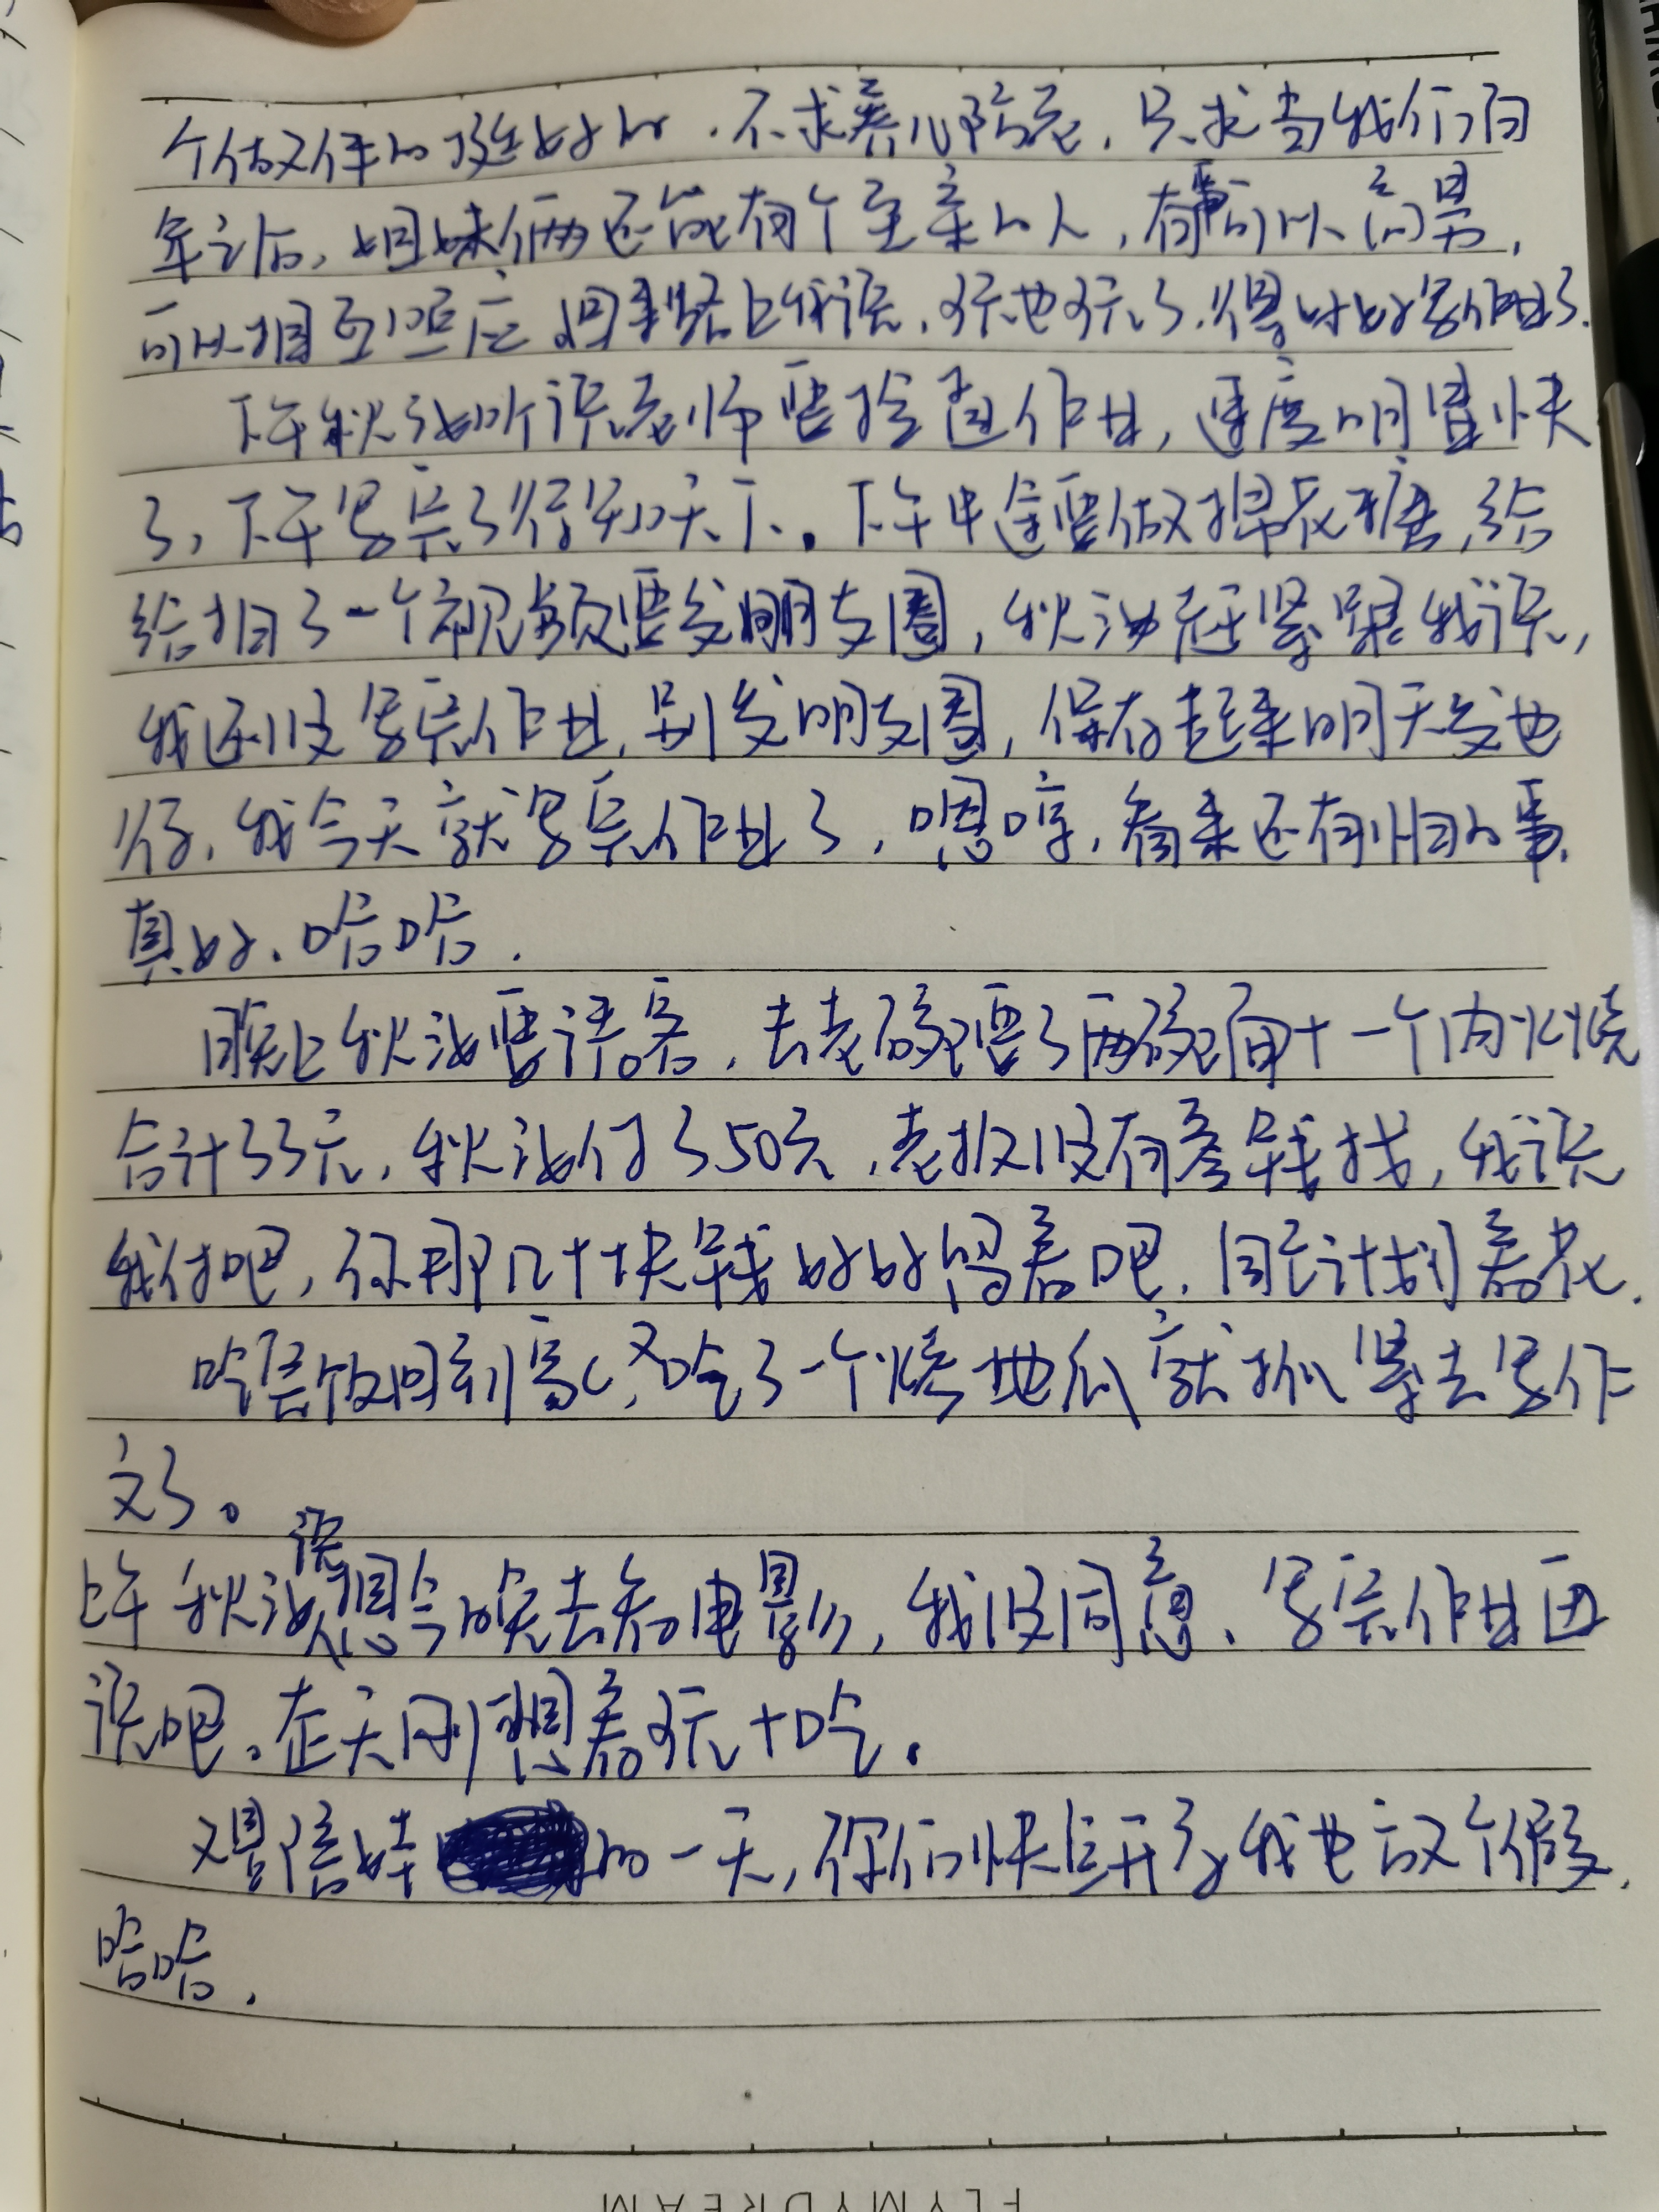 个做伴的挺好的，不求养儿防老，只求当我们百
年之后，姐妹俩还能有个至亲的人，有事可以商量，
可以相互照应，回来路上我说，玩也玩了，得好好写作业了。
下午秋池听说老师要检查作业，速度明显快
了，下午写完了得知天下。下午中途要做棉花糖，给
给拍了一个视频要发朋友圈，秋池赶紧跟我说，
我还没写完作业，别发朋友圈，保存起来明天发也
行，我今天就写完作业了，嗯哼，看来还有怕的事，
真好，哈哈。
晚上秋池要请客，去老碗要了两碗面+一个肉火烧
合计33元，秋池付了50元，老板没有零钱找，我说
我付吧，你那几十块钱好好留着吧，自己计划着花。
吃完饭回到家，又吃了一个烤地瓜就抓紧去写作
文了。
上午秋池说想今晚去看电影，我没同意，写完作业再
说吧。整天网想着玩+吃。
又是信娃的一天，你们快点开学，我也放个假，
哈哈。
FLYMYDREAM